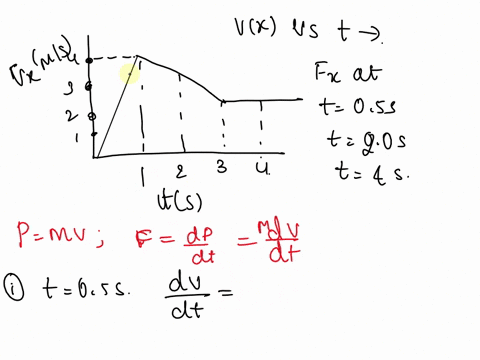 V(x) vs t →
Vx (m/s)
4
3
2
1
1 2 3 4
t(s)
Fx at
t = 0.5s
t = 2.0 s
t = 4 s.
P = MV ; F = dP/dt = M dV/dt
i t = 0.5s. dV/dt =